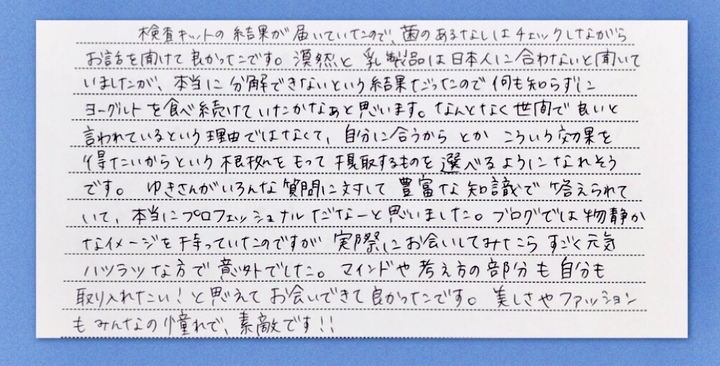 検査キットの結果が届いていたので、菌のあるなしはチェックしながら
お話を聞けて良かったです。漠然と乳製品は日本人に合わないと聞いて
いましたが、本当に分解できないという結果だったので何も知らずに
ヨーグルトを食べ続けていたかなぁと思います。なんとなく世間で良いと
言われているという理由ではなくて、自分に合うからとかこういう効果を
得たいからという根拠をもって摂取するものを選べるようになれそう
です。ゆきさんがいろんな質問に対して豊富な知識で答えられて
いて、本当にプロフェッショナルだなーと思いました。ブログでは物静か
なイメージを持っていたのですが実際にお会いしてみたらすごく元気
ハツラツな方で意外でした。マインドや考え方の部分も自分も
取り入れたい！と思えてお会いできて良かったです。美しさやファッション
もみんなの憧れで、素敵です！！